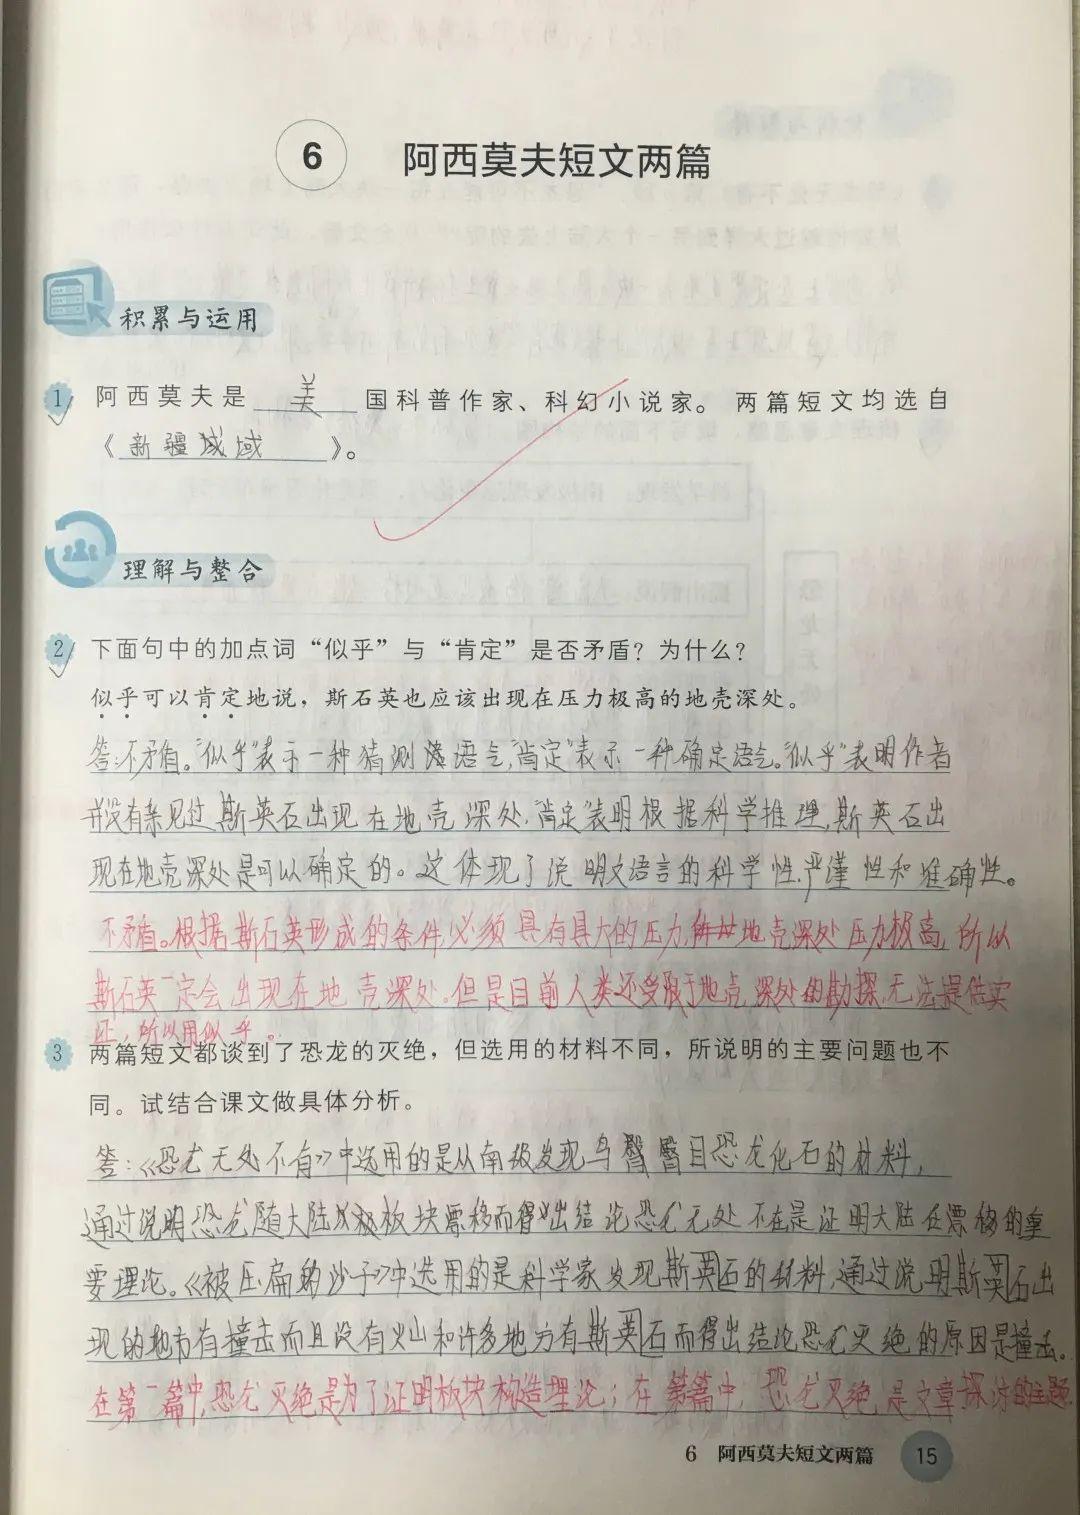 6 阿西莫夫短文两篇
积累与运用
1 阿西莫夫是 美 国科普作家、科幻小说家。两篇短文均选自
《新疆域》。
理解与整合
2 下面句中的加点词“似乎”与“肯定”是否矛盾？为什么？
似乎可以肯定地说，斯石英也应该出现在压力极高的地壳深处。
答:不矛盾。“似乎”表示一种猜测语气,“肯定”表示一种确定语气。“似乎”表明作者
并没有亲见过斯英石出现在地壳深处,“肯定”表明根据科学推理,斯英石出
现在地壳深处是可以确定的。这体现了说明文语言的科学性、严谨性和准确性。
不矛盾。根据斯石英形成的条件,必须具有具大的压力,地壳深处压力极高,所以
斯石英一定会出现在地壳深处。但是目前人类还受限于地壳深处的勘探,无法提供实
证,所以用似乎。
3 两篇短文都谈到了恐龙的灭绝，但选用的材料不同，所说明的主要问题也不
同。试结合课文做具体分析。
答:《恐龙无处不有》中选用的是从南极发现鸟臀目恐龙化石的材料,
通过说明恐龙随大陆板块漂移而得出结论恐龙无处不在是证明大陆在漂移的重
要理论。《被压扁的沙子》中选用的是科学家发现斯英石的材料,通过说明斯英石出
现的地方有撞击而且没有火山和许多地方有斯英石而得出结论恐龙灭绝的原因是撞击。
在第一篇中,恐龙灭绝是为了证明板块构造理论;在第篇中,恐龙灭绝,是文章探讨的主题.
6 阿西莫夫短文两篇 15